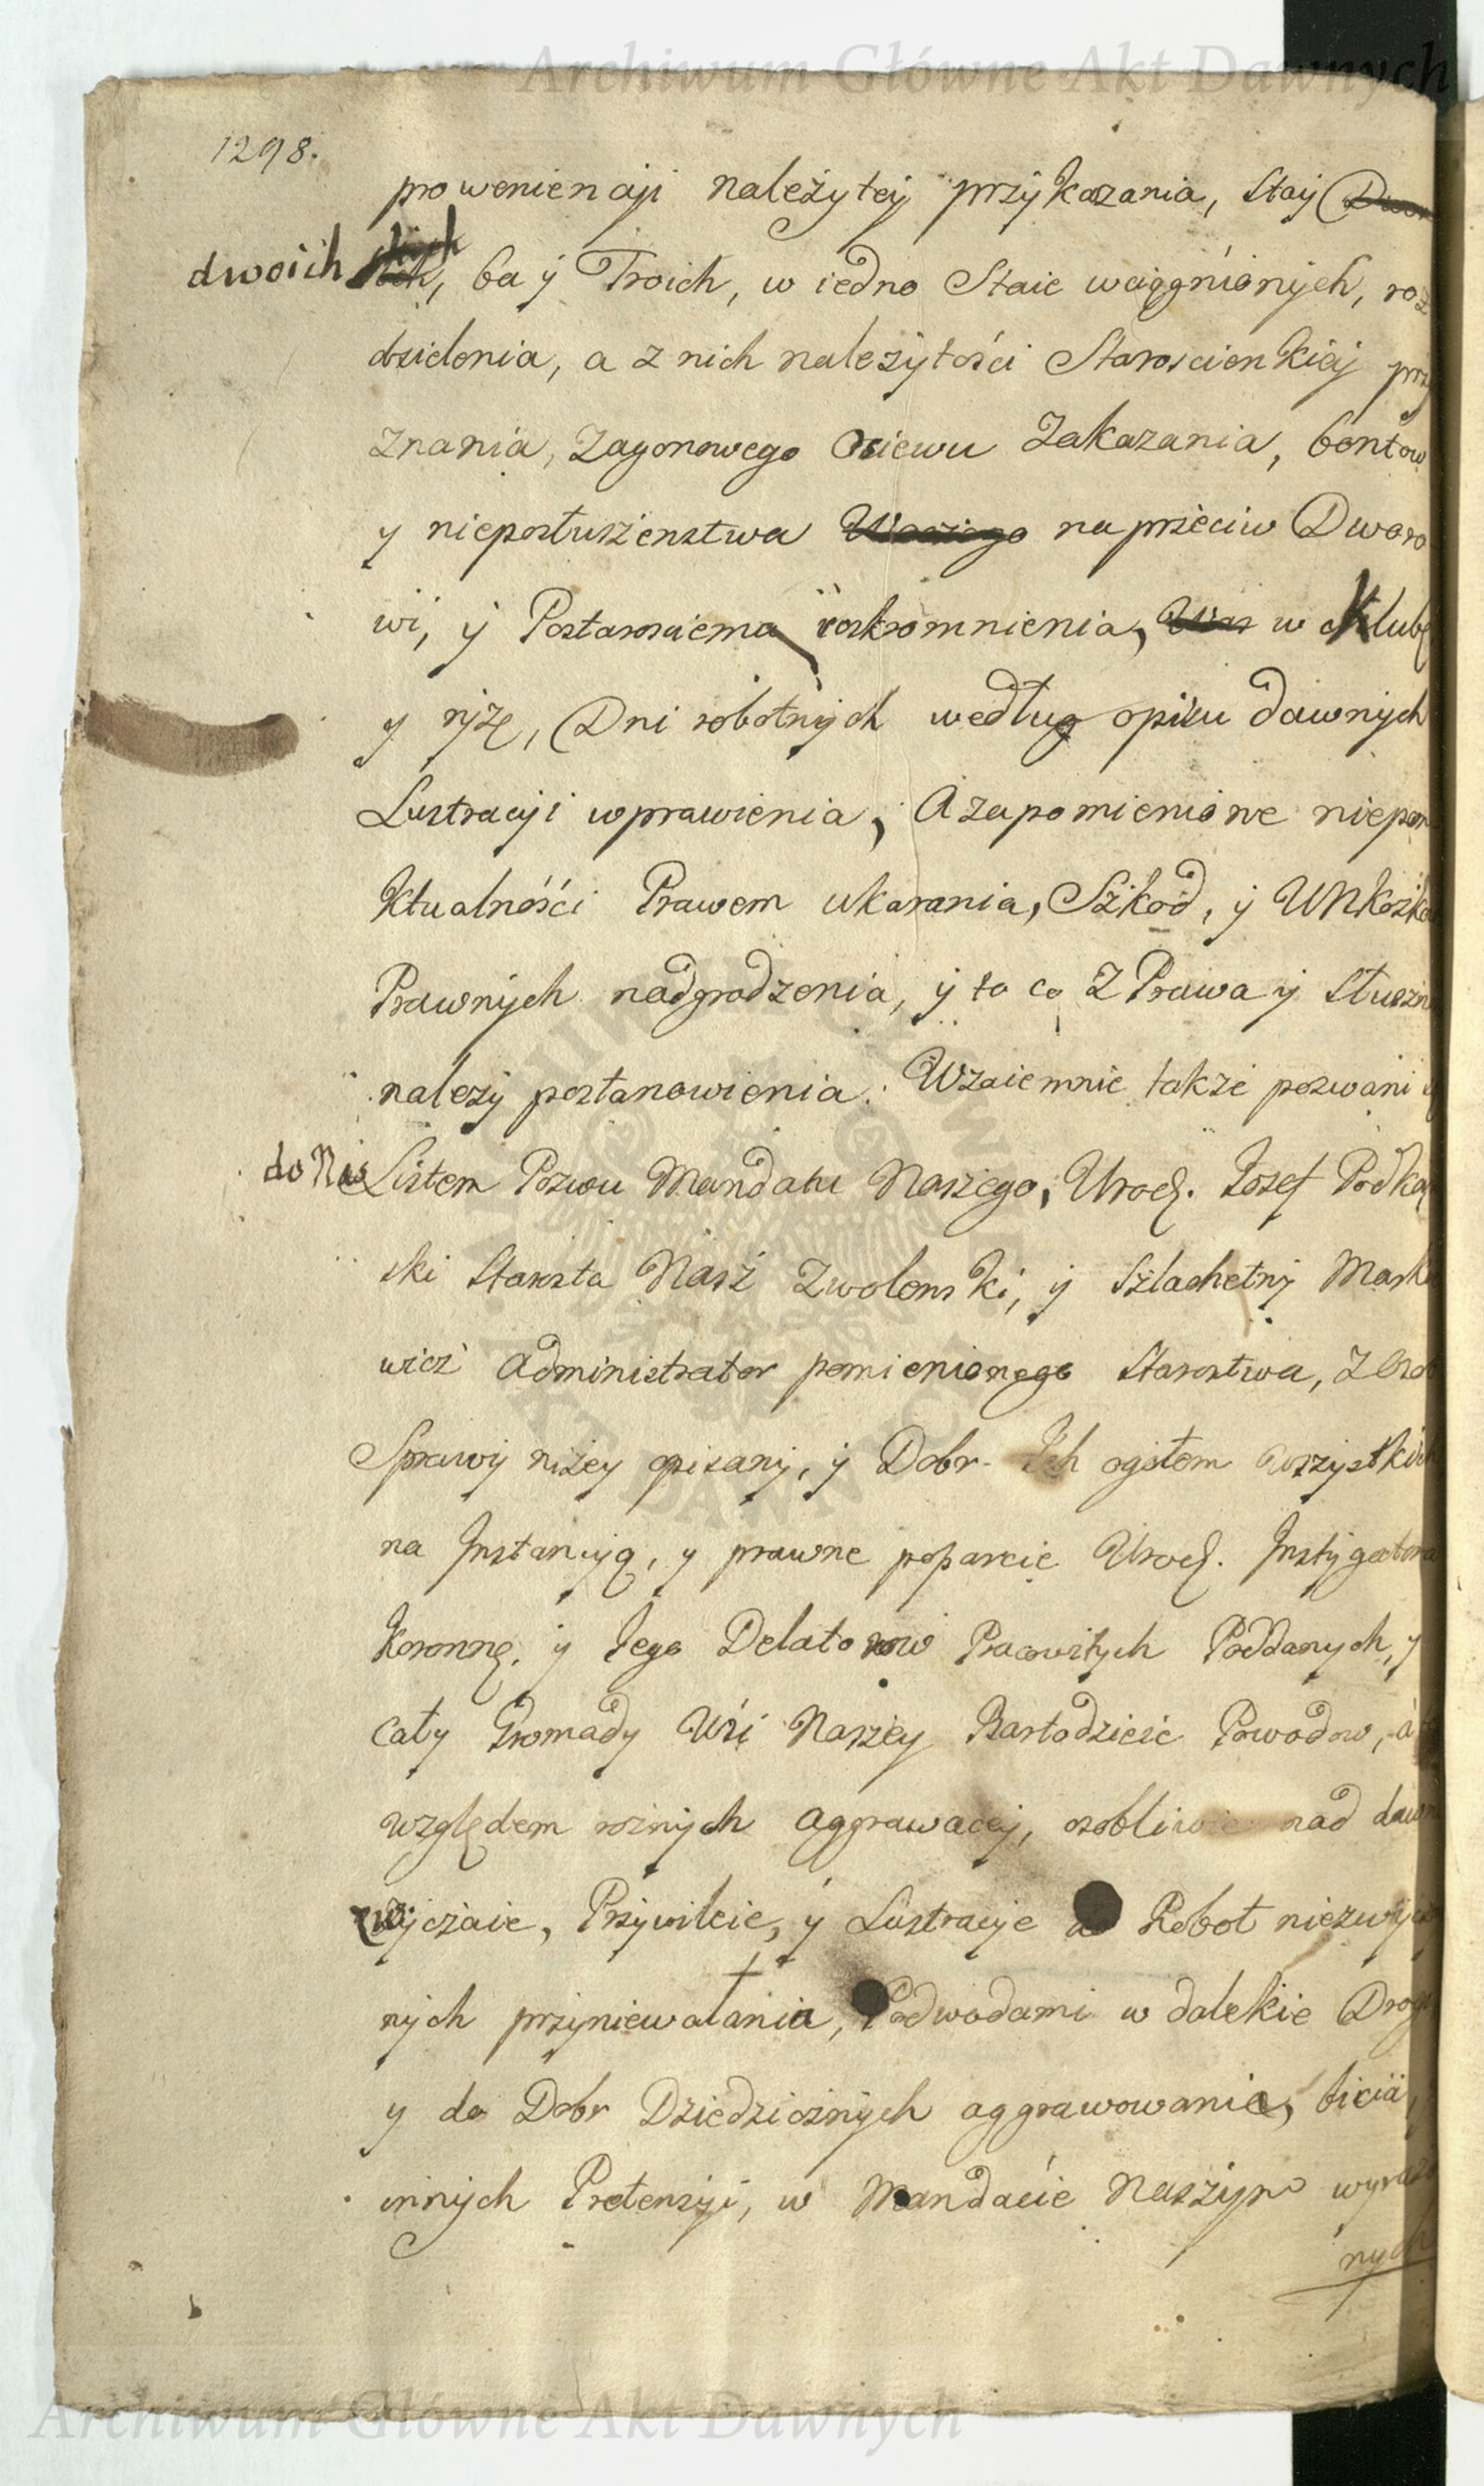 Archiwum Główne Akt Dawnych
1298.
prowenienciji należytey przykazania, Stay
dwoich, ba ÿ Troich, w iedno Staie wciągnionych, roz
dzielenia, a z nich należytości Staroscienskiej przy
znania, Zagonowego Osiewu Zakazania, bontow
y nieposłuszenstwa naprzeciw Dworo
wi, ÿ Postarosciemu roskromnienia, w Klubę
y ryzę, Dni robotnych według opisu dawnych
Lustracyi wprawienia, A zapomienione niepon
ktualności Prawem ukarania, Szkod, ÿ
Prawnych nadgrodzenia, ÿ to co Z Prawa ÿ Słuszn
należy postanowienia. Wzaiemnie także pozwani
do Nas Listem Pozwu Mandatu Naszego, Urodz. Jozef Podkań
ski Starosta Nasz Zwolenski, ÿ Szlachetny Mark
wicz Administrator pomienionego Starostwa, Z Osob
Sprawy niżey opisany, ÿ Dobr Ich ogołem wszystkich
na Instancyą, y prawne poparcie Urodz. Instygatora
Koronne, ÿ Jego Delatorow Pracowitych Poddanych, y
cały Gromady Wsi Naszey Bartodzieie Powodow, a
względem roznych aggrawacej, osobliwie nad dawne
zwyczaie, Przywileie, ÿ Lustracye do Robot niezwycz
nych przyniewalania, Podwodami w dalekie Drogi
y do Dobr Dziedzicznych aggrawowania, bicia,
innych Pretensyi, w Mandacie Naszym wyrażo
nych
Archiwum Główne Akt Dawnych